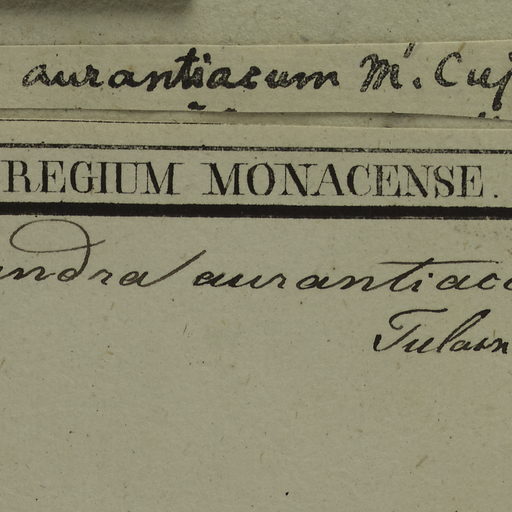 aurantiacum M'. Cuj
REGIUM MONACENSE.
andra aurantiaca
Tulasn